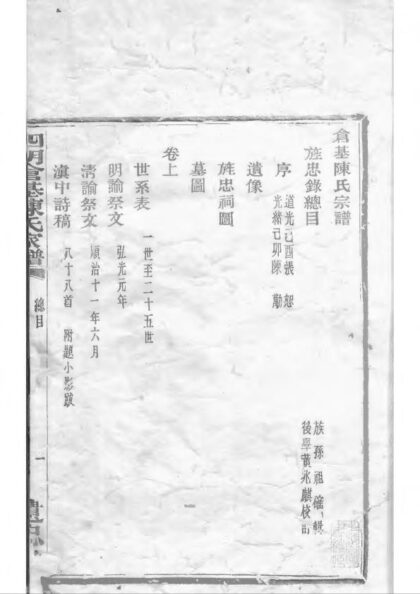 倉基陳氏宗譜
旌忠錄總目
族孫祖確輯
後學黃兆麟校刊
序
道光己酉張恕
光緒己卯陳勱
遺像
旌忠祠圖
墓圖
卷上
世系表 一世至二十五世
明諭祭文 弘光元年
清諭祭文 順治十一年六月
滇中詩稿 八十八首 附題小影跋
四明倉基陳氏家譜
總目
一